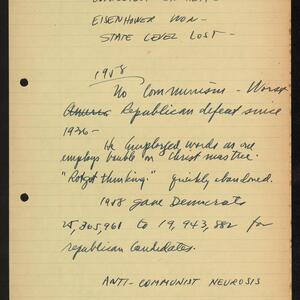 EISENHOWER WON -
STATE LEVEL LOST -
1958
No Communism - Worst
Republican defeat since
1936 -
He employed words as one
employs bauble on Christmas tree.
"Robot thinking." quickly abandoned.
1958 gave Democrats
25,305,961 to 19,943,882 for
republican candidates.
ANTI-COMMUNIST NEUROSIS